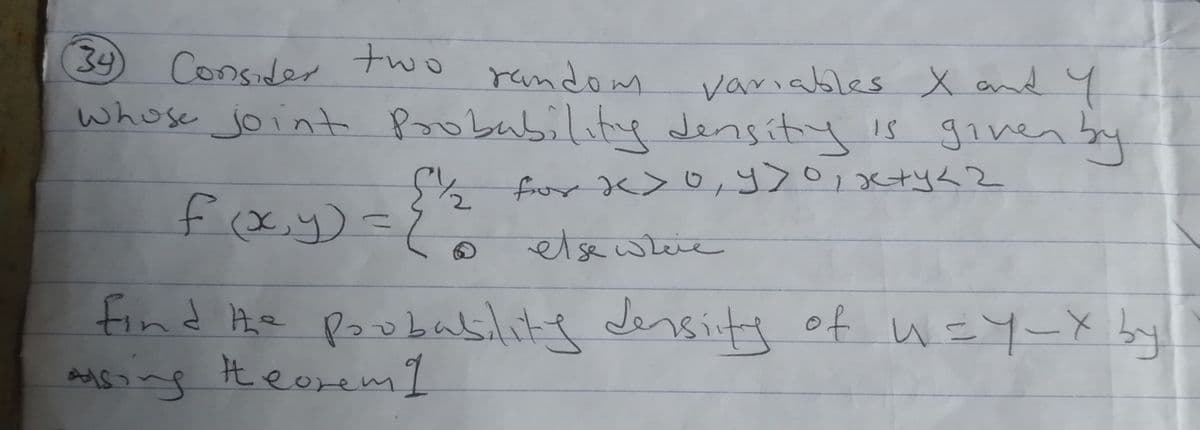 34 Consider two random variables X and Y
whose joint Probability density is given by
f(x,y) = { 1/2 for x>0, y>0, x+y<2
0 elsewhere
find the probability density of u=Y-X by
using theorem 1